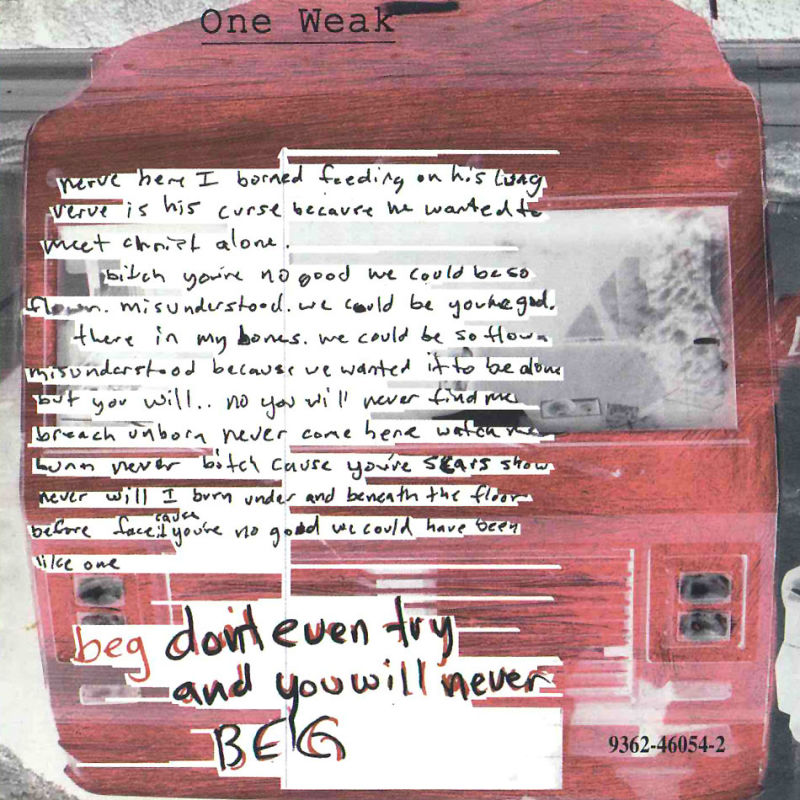 One Weak
nerve here I borned feeding on his lung
verve is his curse because he wanted to
meet christ alone.
bitch you're no good we could be so
flown. misunderstood. we could be you're god.
there in my bones. we could be so flown
misunderstood because we wanted it to be alone
but you will.. no you will never find me
breach unborn never come here watch me
burn never bitch cause you're scars show
never will I burn under and beneath the floor
before face it cause you're no good we could have been
like one
beg don't even try
and you will never
BEG
9362-46054-2